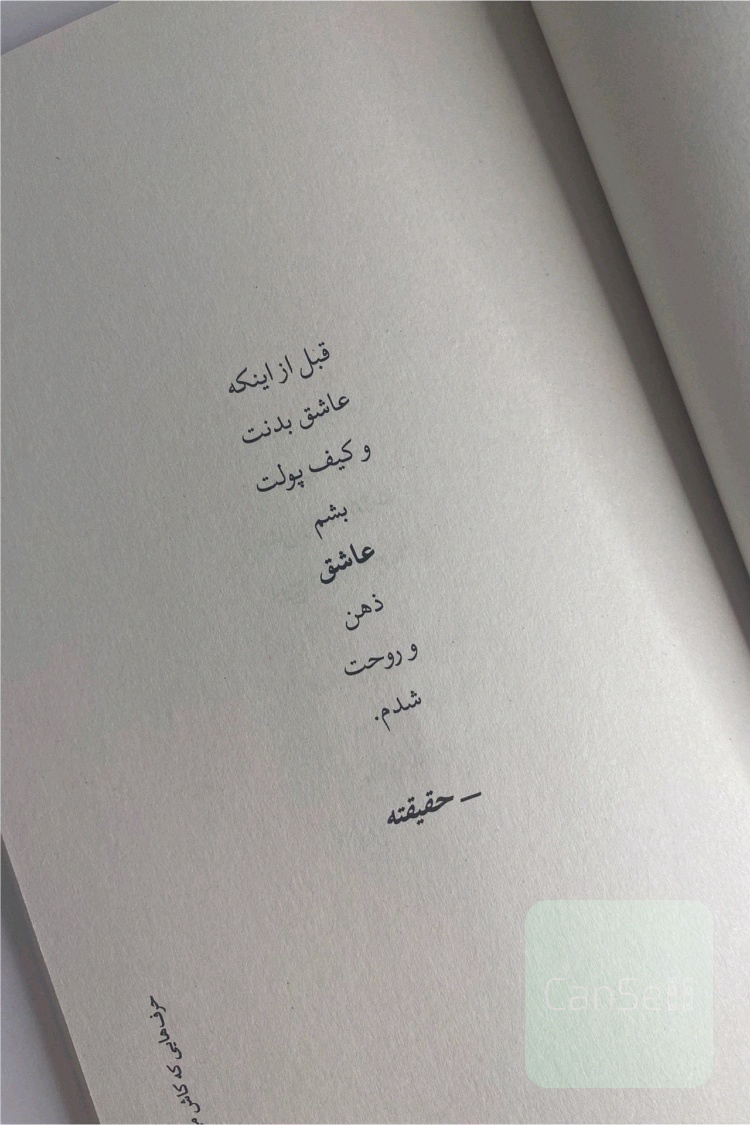 قبل از اینکه
عاشق بدنت
و کیف پولت
بشم
عاشق
ذهن
و روحت
شدم.
– حقیقته
حرف‌هایی که کاش
CanSell